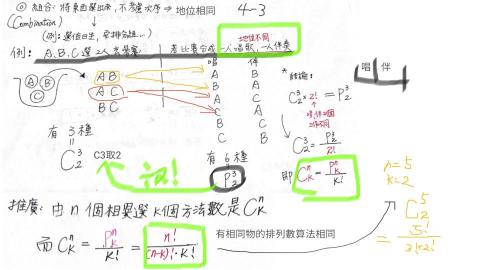 ◎ 組合:將東西選出來,不考慮次序⇒地位相同 4-3
(Combination)
(例:選值日生,拿排合組...)
地位不同
例:A.B.C 選2人去參賽 若比賽合成一人唱歌,一人伴奏
唱 伴
A B
B A
A C
C A
B C
C B
A B
C
A B
A C
B C
有3種
C³₂ C3取2
÷2!
有6種
P³₂
*結論:
C³₂×2! = P³₂
唱,伴2個
工作不同
C³₂ = P³₂/2!
即 Cⁿₖ = Pⁿₖ/k!
唱 伴
推廣:由n個相異選k個方法數是Cⁿₖ
而 Cⁿₖ = Pⁿₖ/k! = n!/(n-k)!·k!
有相同物的排列數算法相同
n=5
k=2
C⁵₂
= 5!/3!×2!